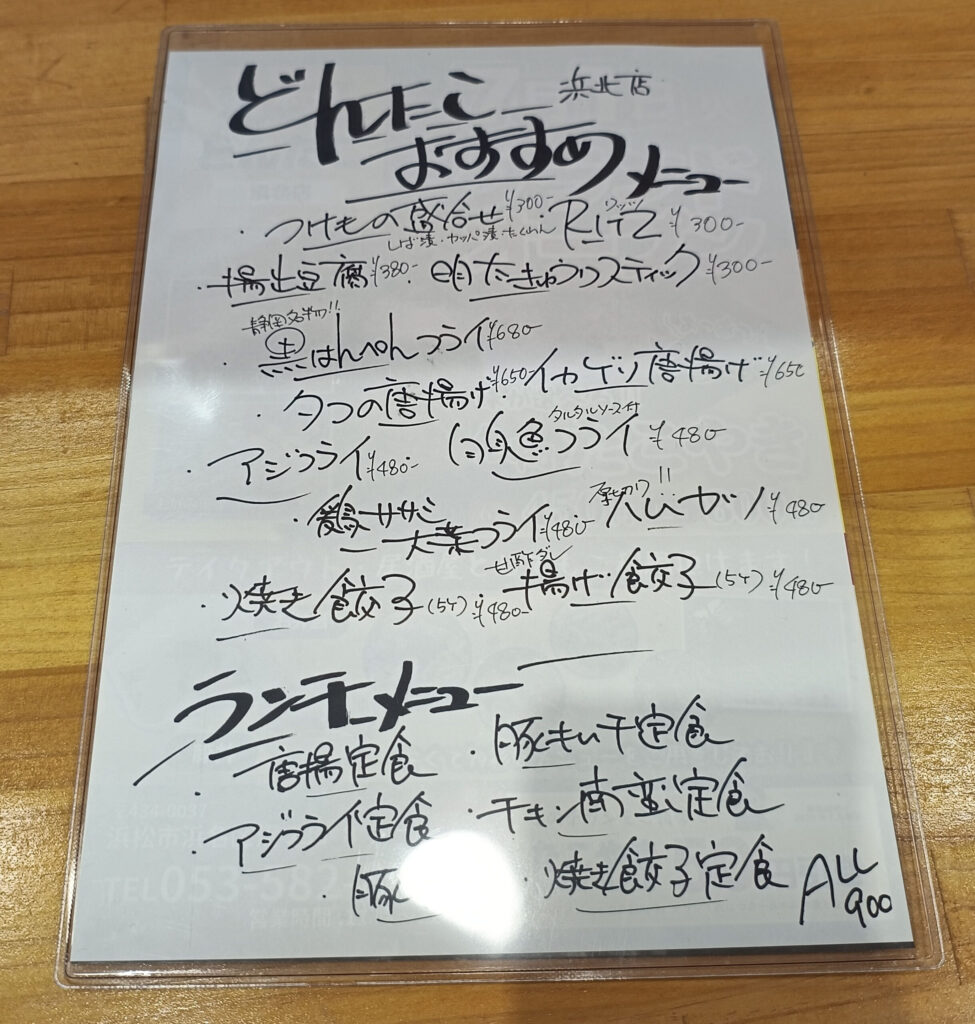 どんたこ 浜北店
おすすめメニュー
・つけもの盛合せ ¥300- RITZ リッツ ¥300-
しば漬・カッパ漬・たくわん
・揚出豆腐 ¥380- 明太きゅうりスティック ¥300-
静岡名物!!
黒はんぺんフライ ¥680-
・タコの唐揚げ ¥650- イカゲソ唐揚げ ¥650
・アジフライ ¥480- 白身魚フライ タルタルソース付 ¥480-
・鶏ササミ大葉フライ ¥480- 厚切り!! ハムカツ ¥480-
・焼き餃子(5ケ) ¥480- 甘酢ダレ 揚げ餃子(5ケ) ¥480-
ランチメニュー
・唐揚定食 ・豚キムチ定食
・アジフライ定食 ・チキン南蛮定食
・豚 ・焼き餃子定食
ALL 900
浜松市浜
TEL053-58